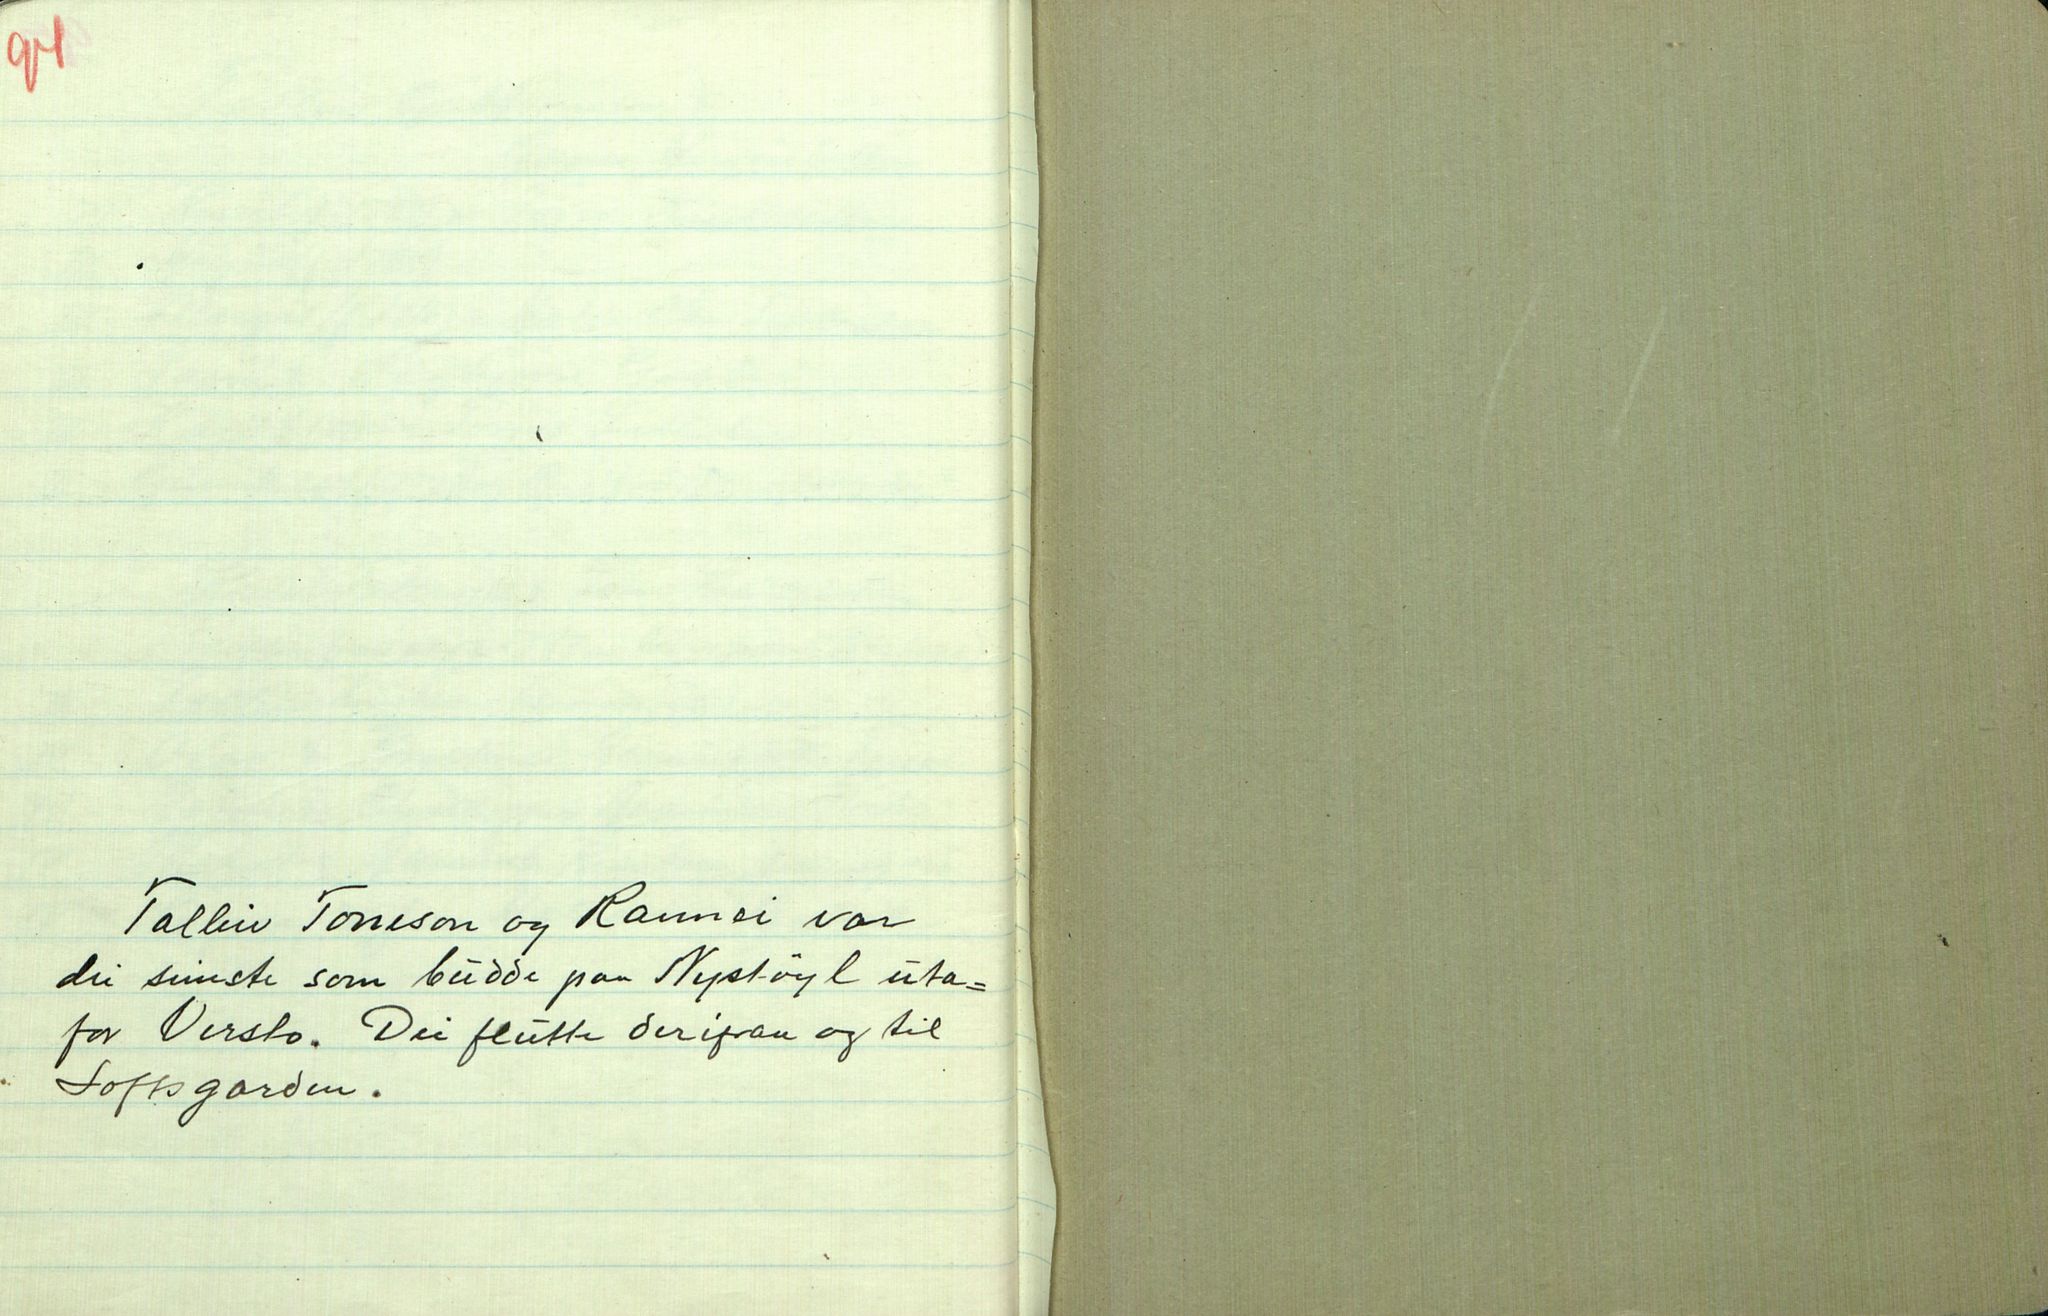 94
Tallein Torreson og Rannei var
dei seinste som budde paa Nystöyl uta=
for Versto. Dei flutte derifraa og til
Loftsgarden.